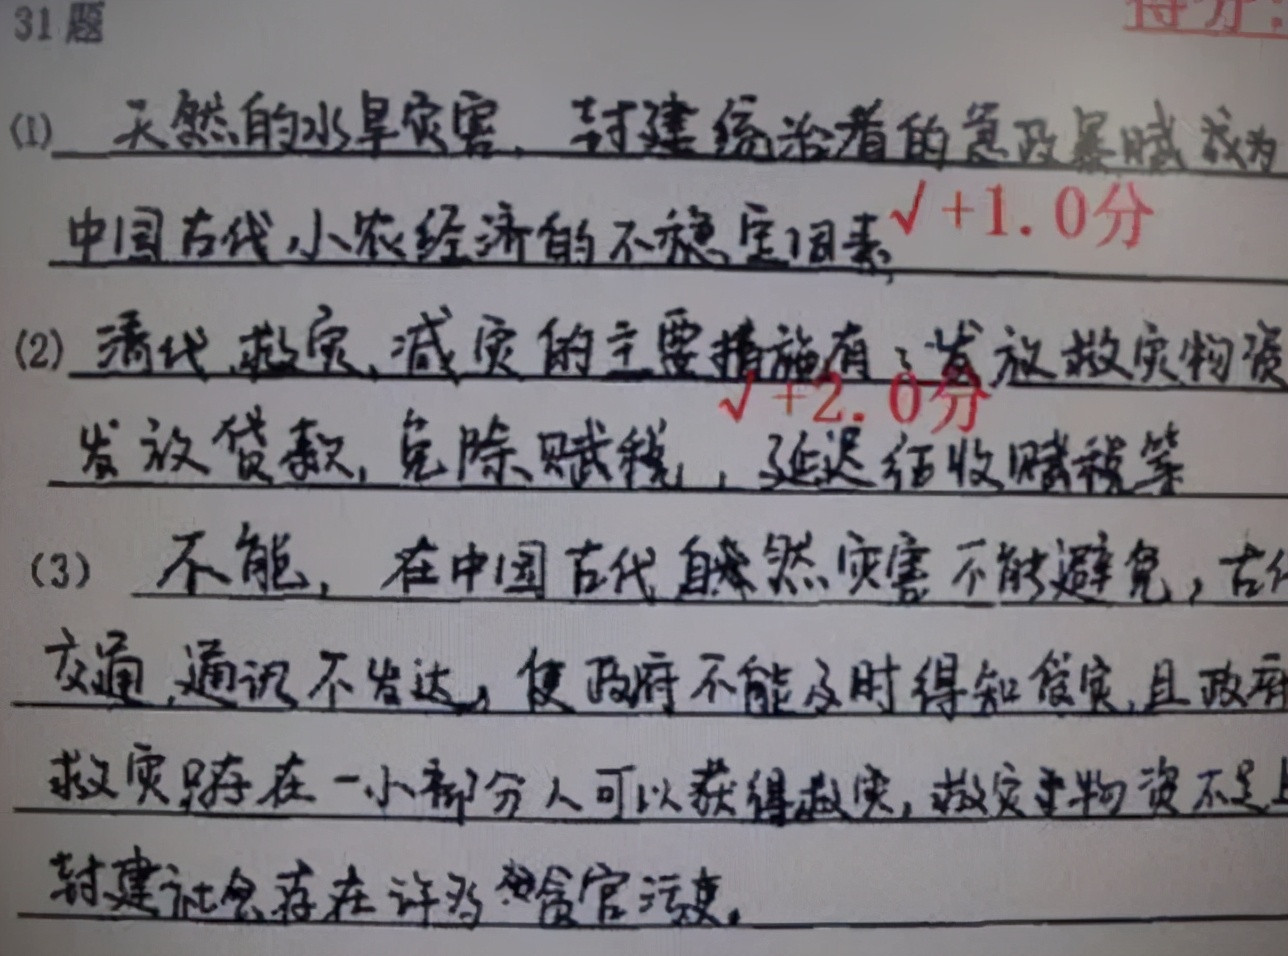 31题
得分:
(1) 天然的水旱灾害、封建统治者的急政暴赋成为
中国古代小农经济的不稳定因素,
√+1.0分
(2) 清代救灾、减灾的主要措施有:发放救灾物资
√+2.0分
发放贷款,免除赋税,,延迟征收赋税等
(3) 不能,在中国古代自然灾害不能避免,古代
交通、通讯不发达,使政府不能及时得知受灾,且政府
救灾只存在一小部分人可以获得救灾,救灾物资不足
封建社会存在许多贪官污吏。